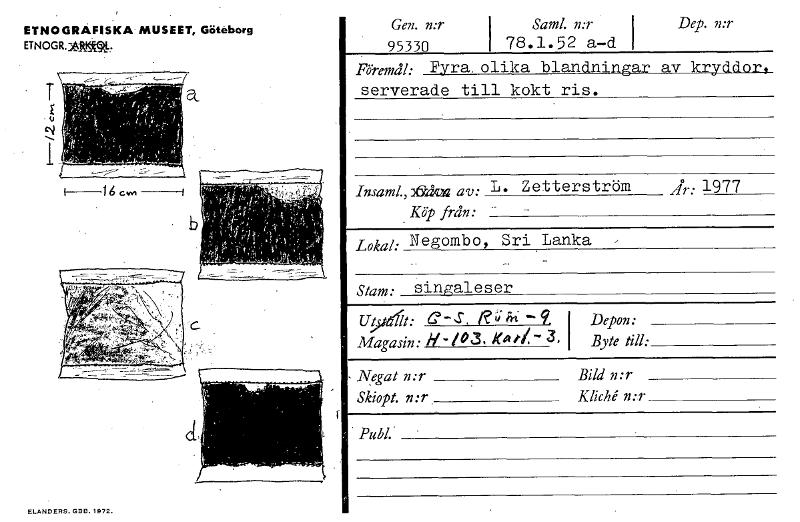 ETNOGRAFISKA MUSEET, Göteborg
ETNOGR. ARKEOL.
a
12 cm
16 cm
b
c
d
ELANDERS. GBG. 1972.
Gen. n:r Saml. n:r Dep. n:r
95330 78.1.52 a-d
Föremål: Fyra olika blandningar av kryddor,
serverade till kokt ris.
Insaml., Gåva av: L. Zetterström År: 1977
Köp från:
Lokal: Negombo, Sri Lanka
Stam: singaleser
Utställt: G-S. Rüm-9 Depon:
Magasin: H-103. Kart.-3. Byte till:
Negat n:r Bild n:r
Skiopt. n:r Kliché n:r
Publ.